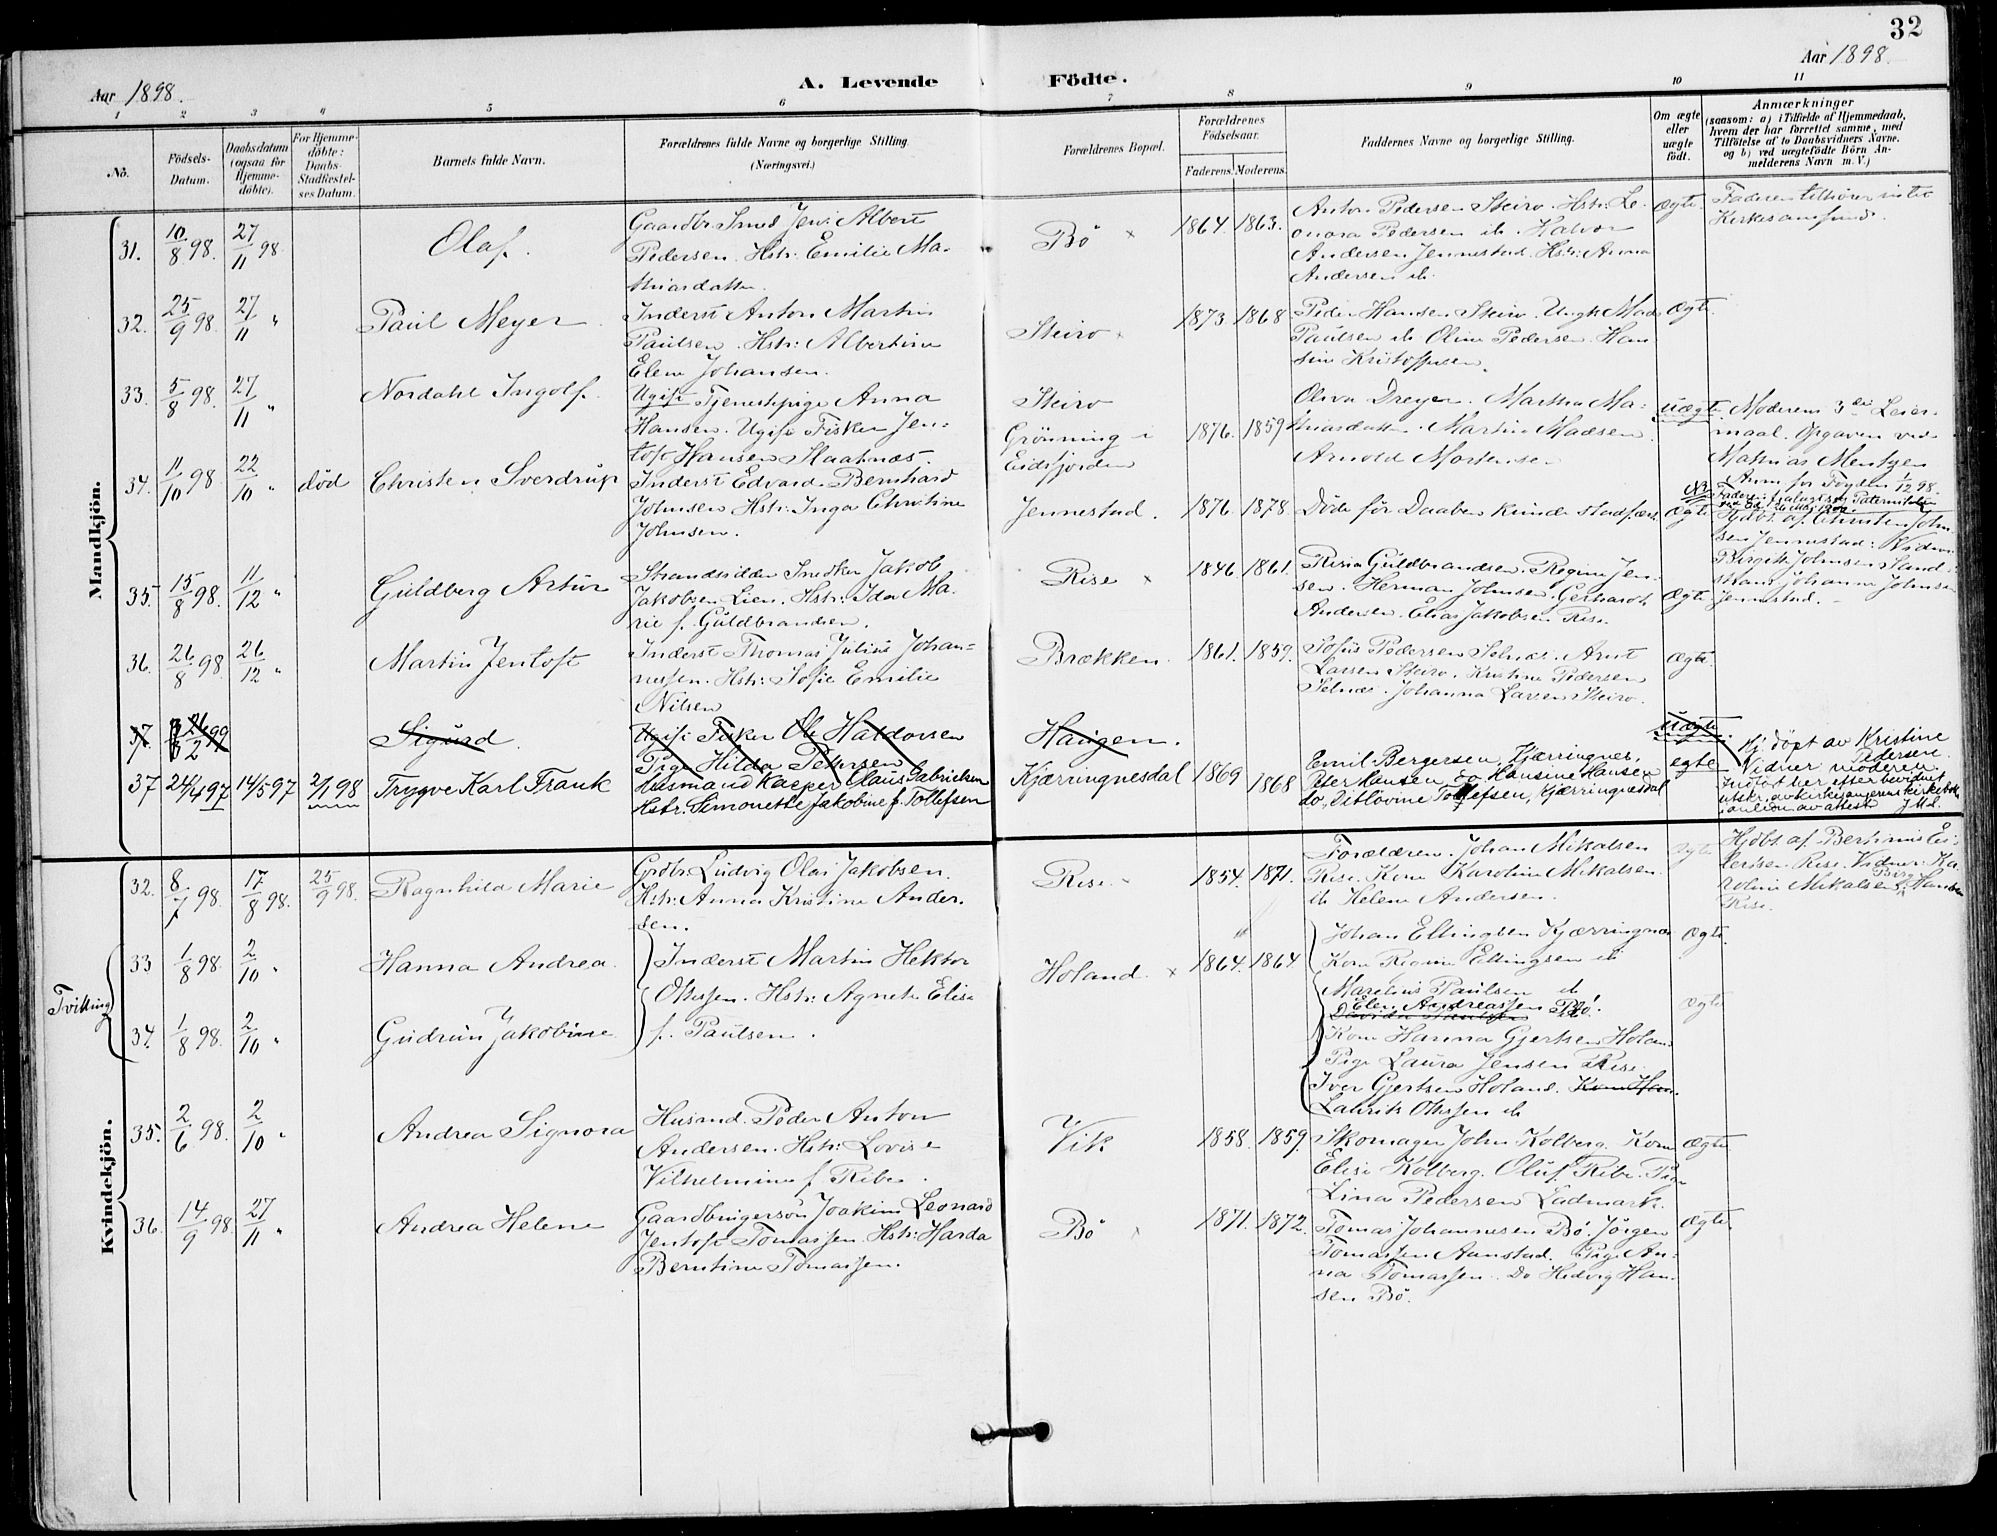 32
Aar 1898.
A. Levende Födte.
Aar 1898.
1 2 3 4 5 6 7 8 9 10 11
No.
Födsels-Datum.
Daabsdatum (ogsaa for Hjemme-döbte).
For Hjemme-döbte: Daabs-Stadfæstel-ses Datum.
Barnets fulde Navn.
Forældrenes fulde Navne og borgerlige Stilling.
(Næringsvei.)
Forældrenes Bopæl.
Forældrenes Födselsaar.
Faderens. Moderens.
Faddernes Navne og borgerlige Stilling.
Om ægte eller uægte födt.
Anmærkninger
(saasom: a) i Tilfælde af Hjemmedaab,
hvem der har forrettet samme, med
Tilföielse af to Daabsvidners Navne.
og b) ved uægtefödte Börn An-
melderens Navn m. V.)
Mandkjön.
31. 10/8 98. 27/11 98 Olaf.
Gaardbr. Smed Jens Albert
Pedersen. Hstr: Emilie Ma-
thiasdatter
Bö × 1864. 1863.
Anton Pedersen Steiro. Hstr: Le-
onora Pedersen ib. Halvor
Andersen Jennestad. Hstr: Anna
Andersen ib.
Ægte.
Faderen tilhörer intet
Kirkesamfund.
32. 25/9 98. 27/11 " Paul Meyer
Inderst Anton Martin
Paulsen. Hstr: Albertine
Elene Johansen.
Steiro × 1873. 1868
Peder Hansen Steiro. Ungk. Mads
Paulsen ib. Oline Pedersen. Han
sine Kristoffersen.
Ægte.
33. 5/8 98. 27/11 " Nordahl Ingolf.
Ugift Tjenestepige Anna
Hansen. Ugift Fisker Jen-
toft Hansen Haatnæs.
Steiro
Grönning i
Eidsfjorden
1876. 1859
Oliva Dreyer. Martha Ma-
thiasdatter. Martin Madsen
Arnold Mortensen
uægte
Moderens 3die Leier-
maal. Opgaven ved
Mathias Mentzen
Anm. for Fogden 1/12 98.
34. 11/10 98 22/10 " död Christen Sverdrup
Inderst Edvard Bernhard
Johnsen Hstr: Inga Christine
Johnsen.
Jennestad. 1876. 1878.
Döde för Daaben kunde stadfæst
Ægte
Hjdbt. af Christen John
sen Jennestad: Vidner
Birgit Johnsen Sand-
strand, Johanna Johnsen
Jennestad.
35. 15/8 98. 11/12 " Guldberg Artur
Strandsidder Snedker Jakob
Jakobsen Lien. Hstr: Ida Ma-
rie f. Guldbrandsen.
Rise × 1846. 1861.
Risia Guldbrandsen. Regine Jen-
sen. Herman Johnsen. Gerhardt
Andersen. Elias Jakobsen Rise.
Ægte.
36. 26/8 98. 26/12 " Martin Jentoft
Inderst Thomas Julius Johan-
nessen. Hstr: Sofie Emilie
Nilsen
Brækken. 1861. 1859.
Sofus Pedersen Selnæs. Arnt
Larsen Steiro. Kristine Pedersen
Selnæs. Johanna Larsen Steiro.
Ægte.
37. 21/2 99 Sigurd.
Ugift Fisker Ole Haldorsen
Pige Hilda Petersen
Haugen.
uægte
37 24/4 97 14/5 97 2/1 98 Trygve Karl Frank
Husmand Kasper Claus Gabrielsen
Hstr. Simonette Jakobine f. Tollefsen
Kjærringnesdal 1869 1868
Emil Bergersen, Kjærringnes,
Peter Hansen, do Hansine Hansen
do, Ditlovine Tollefsen, Kjærringnesdal
egte
Hj. döpt av Kristine
Pedersen.
Vidner moderen.
Indföt her efter bevidnet
utskr. av kirkesangerens kirkebok
Kvindekjön.
32. 8/7 98. 17/8 98. 25/9 98. Ragnhild Marie
Grdbr. Ludvig Olai Jakobsen.
Hstr: Anna Kristine Ander-
sen.
Rise. 1854. 1871.
Forældrene. Johan Mikalsen
Rise. Kone Karoline Mikalsen.
ib. Helene Andersen.
Ægte
Hjdbt. af Berthinus Ei-
lertsen Rise. Vidner: Ka
roline Mikalsen, Birg. Hansen
Rise.
Tvilling
33 1/8 98. 2/10 " Hanna Andrea.
34. 1/8 98. 2/10 " Gudrun Jakobine
Inderst Martin Hektor
Ottesen. Hstr: Agnete Elise
f. Paulsen.
Holand. × 1864. 1864.
Johan Ellingsen Kjærringnæs
Kone Regine Ellingsen ib
Marelius Paulsen ib
Elen Andreassen Bö.
Kone Hanna Gjertsen Holand
Pige Laura Jensen Rise.
Iver Gjertsen Holand. Kone Han.
Laurits Ottesen ib
Ægte.
Ægte
35. 2/6 98. 2/10 " Andrea Signora
Husmd. Peder Anton
Andersen. Hstr: Lovise
Vilhelmine f. Ribe.
Vik 1858. 1859.
Skomager John Kolberg. Kone
Elise Kolberg. Oluf Ribe. Pige
Lina Pedersen Ladmark.
Ægte
36. 14/9 98. 27/11 " Andrea Helene
Gaardbrugersön Joakim Leonard
Jentoft Tomassen. Hstr: Harda
Berntine Tomassen.
Bö × 1871. 1872.
Tomas Johannesen Bö. Jörgen
Tomassen Aanstad. Pige An-
na Tomassen. Do Hedvig Han-
sen Bö.
Ægte.